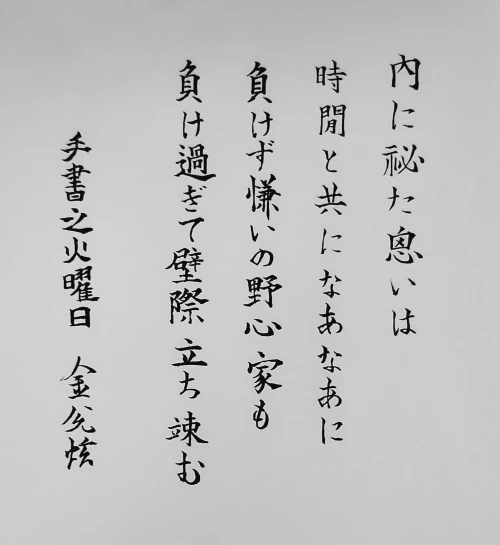 内に祕た思いは
時間と共になあなあに
負けず慊いの野心家も
負け過ぎて壁際立ち竦む
手書之火曜日 金兌炫